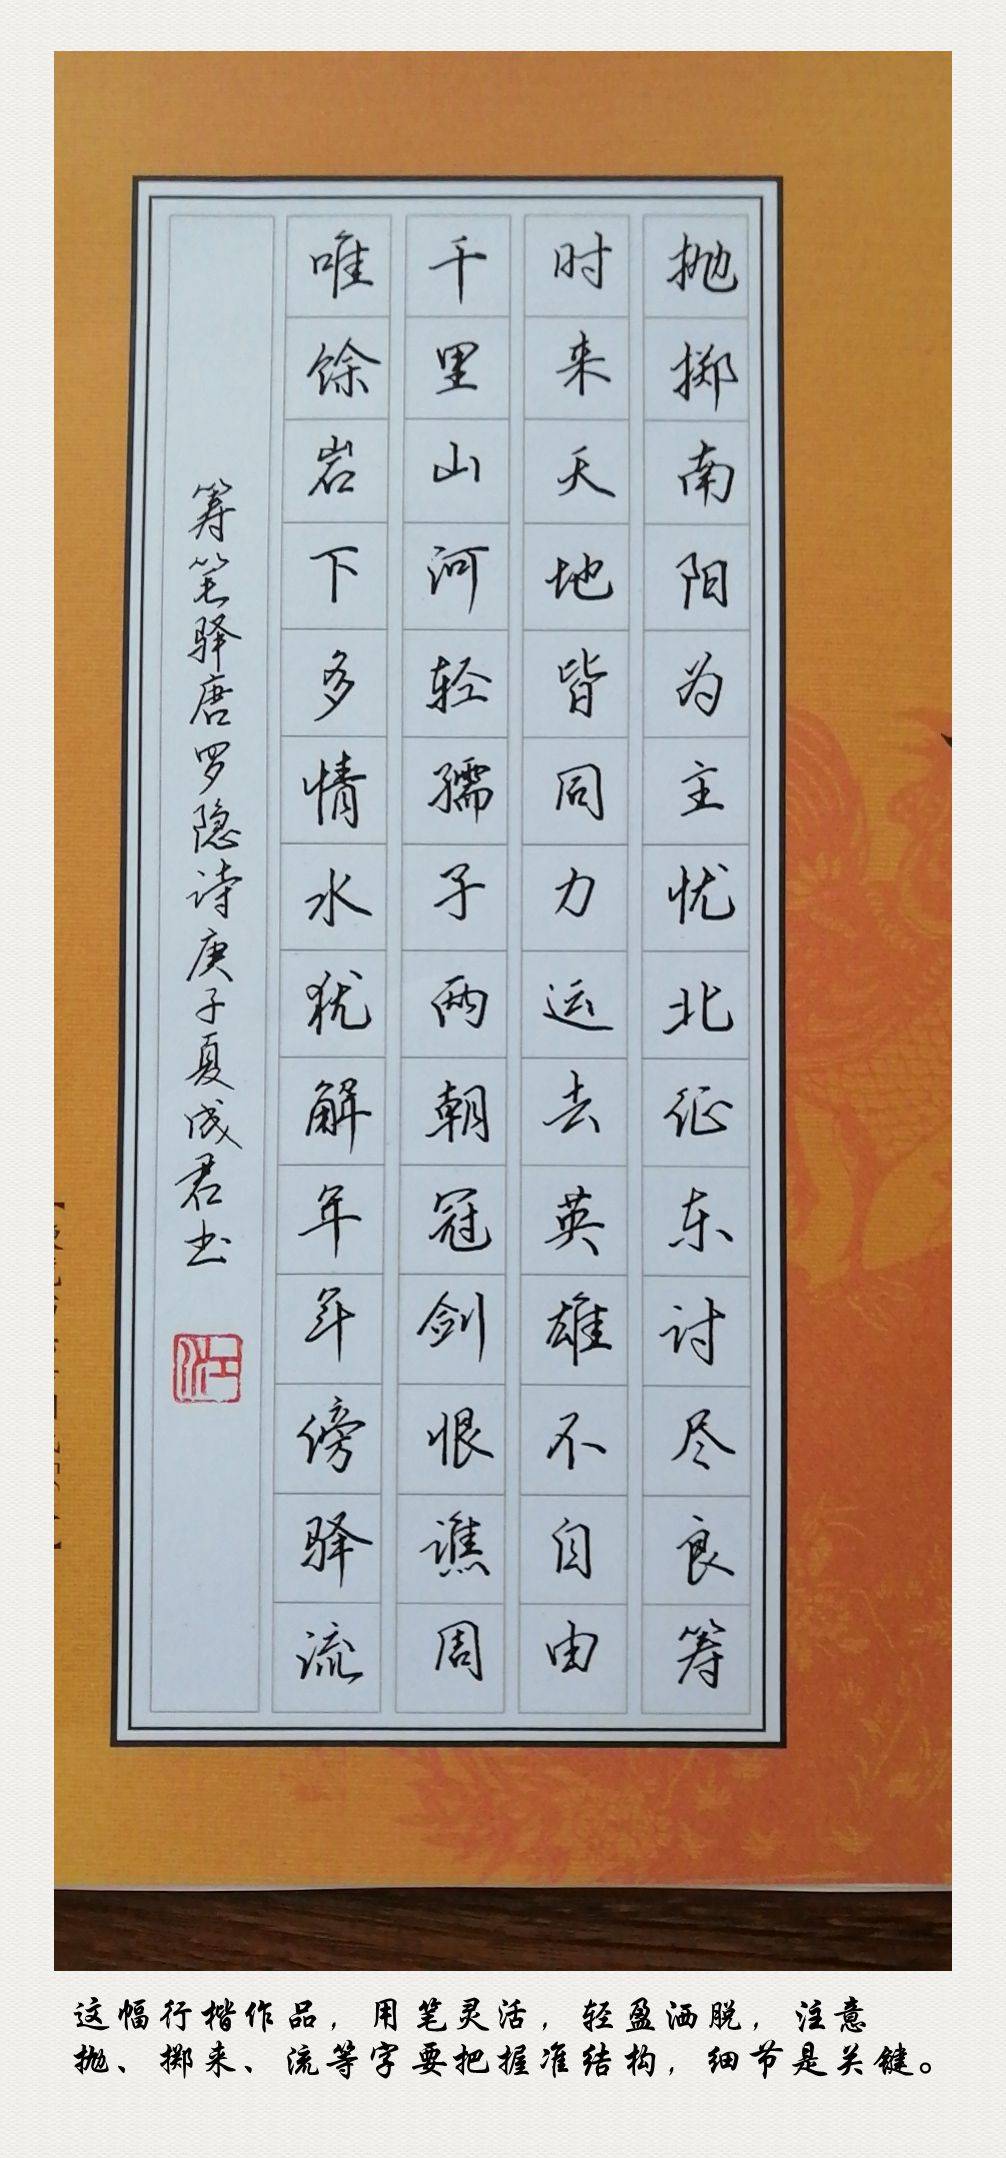 抛掷南阳为主忧北征东讨尽良筹
时来天地皆同力运去英雄不自由
千里山河轻孺子两朝冠剑恨谯周
唯馀岩下多情水犹解年年傍驿流
筹笔驿唐罗隐诗庚子夏成君书
这幅行楷作品，用笔灵活，轻盈洒脱，注意
抛、掷来、流等字要把握准结构，细节是关键。